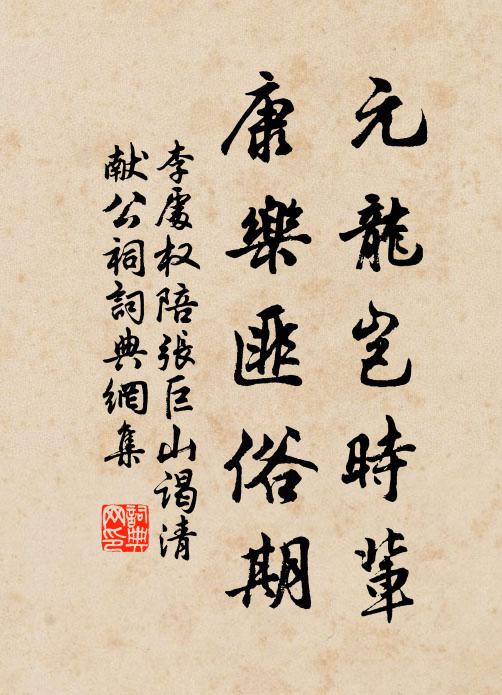 元龍豈時輩
康樂匪俗期
李處权陪張巨山謁清
献公祠詞典網集
詞典网印